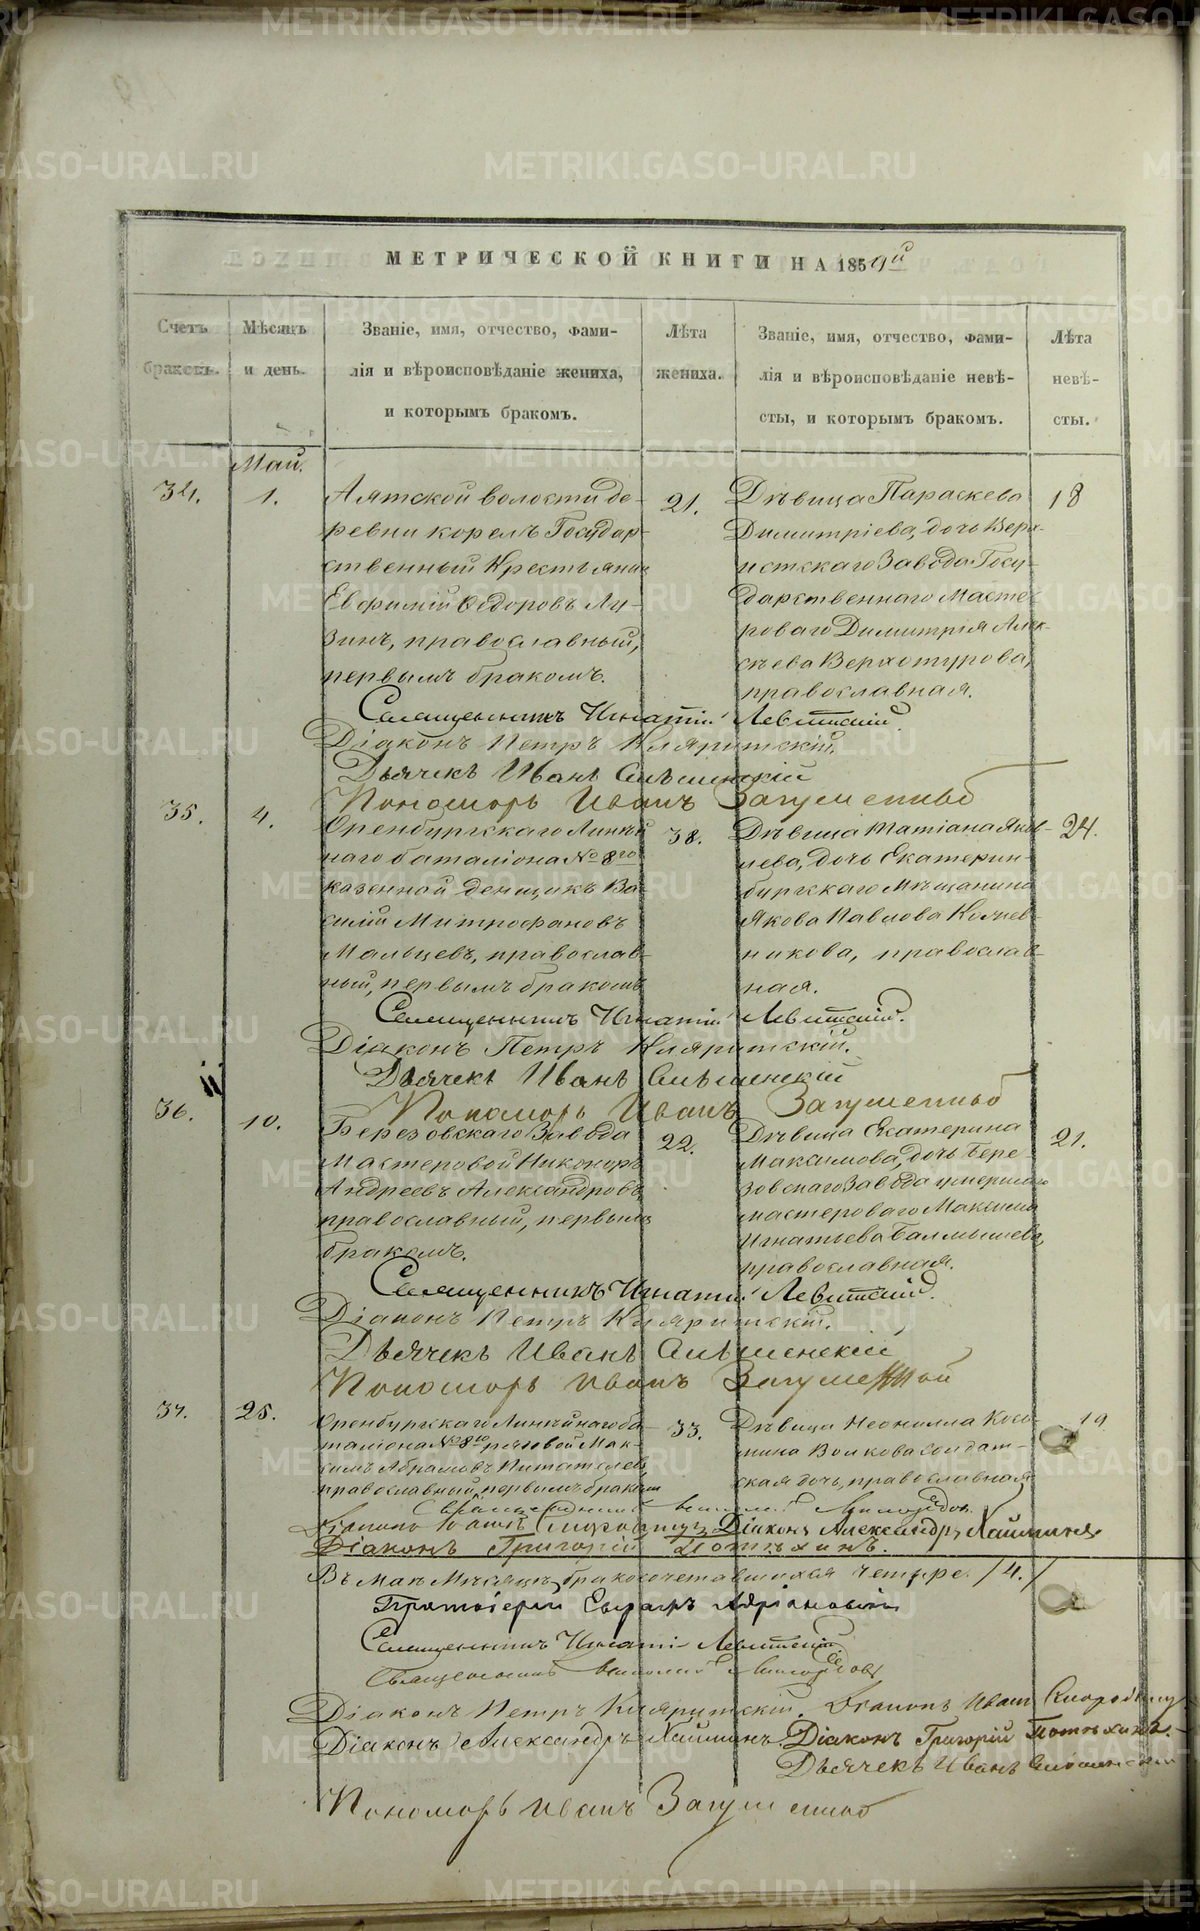 МЕТРИЧЕСКОЙ КНИГИ НА 1859й
Счетъ браковъ.
Мѣсяцъ и день.
Званіе, имя, отчество, фами-
лія и вѣроисповѣданіе жениха,
и которымъ бракомъ.
Лѣта жениха.
Званіе, имя, отчество, фами-
лія и вѣроисповѣданіе невѣ-
сты, и которымъ бракомъ.
Лѣта невѣ-
сты.
Май.
34.
1.
Аятской волости де-
ревни корелъ Государ-
ственный Крестьянин
Евфимій Ѳедоровъ Лу-
зинъ, православный,
первымъ бракомъ.
21.
Дѣвица Параскева
Димитріева, дочь Верх-
исетскаго Завода Госу-
дарственнаго Масте-
роваго Димитрія Алек-
сѣева Верхотурова,
православная.
18
Священникъ Игнатій Левитскій.
Діаконъ Петръ Кляритскій.
Дьячекъ Иванъ
Пономарь Иванъ
35.
4.
Оренбургскаго Линѣй
наго баталіона № 8го
казенной денщикъ Ва-
силій Митрофановъ
Мальцевъ, православ-
ный, первымъ бракомъ
38.
Дѣвица Татіана Яков-
лева, дочь Екатерин-
бургскаго Мѣщанина
Якова Павлова
никова, православ-
ная.
24.
Священникъ Игнатій Левитскій.
Діаконъ Петръ Кляритскій.
Дьячекъ Иванъ
Пономарь Иванъ
36.
10.
Березовскаго Завода
Мастеровой Никоноръ
Андреевъ Александровъ,
православный, первымъ
бракомъ.
22.
Дѣвица Екатерина
Максимова, дочь Бере-
зовскаго Завода умершаго
мастероваго Максима
Игнатьева Балмышева,
православная.
21.
Священникъ Игнатій Левитскій.
Діаконъ Петръ Кляритскій.
Дьячекъ Иванъ
Пономарь Иванъ
37.
25.
Оренбургскаго Линѣйнаго ба-
таліона № 8го рядовой Мак-
симъ Абрамовъ Питателевъ
православный, первымъ бракомъ
33.
Дѣвица Неонилла Косо-
мина Волкова солдат-
ская дочь, православная
19
Діаконъ Александръ Хаминъ
Діаконъ Григорій Потѣхинъ.
Въ Маѣ Мѣсяцѣ бракосочетавшихся четыре. /4./
Протоіерей Адріановскій
Священникъ Игнатій Левитскій
Священникъ
Діаконъ Петръ Кляритскій. Діаконъ Иванъ
Діаконъ Александръ Хаминъ. Діаконъ Григорій Потѣхинъ.
Дьячекъ Иванъ
Пономарь Иванъ
METRIKI.GASO-URAL.RU